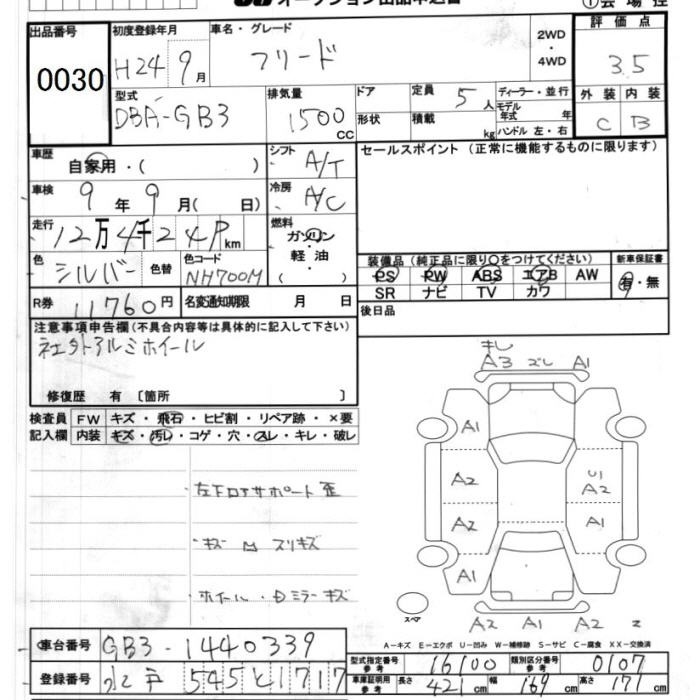 オークション出品申込書
①会場控
出品番号
0030
初度登録年月
H24 9月
車名・グレード
フリード
2WD
・
4WD
評価点
3.5
外装 内装
C B
型式
DBA-GB3
排気量
1500
CC
ドア
形状
定員 5人
積載 kg
ディーラー・並行
モデル年式 年
ハンドル 左・右
車歴
自家用・( )
シフト
A/T
セールスポイント(正常に機能するものに限ります)
車検
9年 9月( 日)
冷房
A/C
走行
12万4千24 km
燃料
ガソリン
軽油
・( )
色
シルバー 色替
色コード
NH700M
装備品(純正品に限り○をつけてください)
PS PW ABS エアB AW
SR ナビ TV カワ
新車保証書
有・無
R券 11760円
名変通知期限 月 日
後日品
注意事項申告欄(不具合内容等は具体的に記入して下さい)
社外アルミホイール
修復歴 有 〔箇所 〕
検査員
記入欄
FW キズ・飛石・ヒビ割・リペア跡・×要
内装 キズ・汚れ・コゲ・穴・スレ・キレ・破レ
左下ロアサポート 歪
キズ スリキズ
ホイール・Dミラーキズ
キレ
A3 ズレ A1
A1
A2
U1
A2
A2
A1
A1
スペア
A2 A1 A2 2
A-キズ E-エクボ U-凹み W-補修跡 S-サビ C-腐食 XX-交換済
車台番号 GB3-1440339
登録番号 水戸 545 と 1717
型式指定番号 参考 16100
類別区分番号 参考 0107
車庫証明用 参考 長さ 421cm 幅 169cm 高さ 171cm